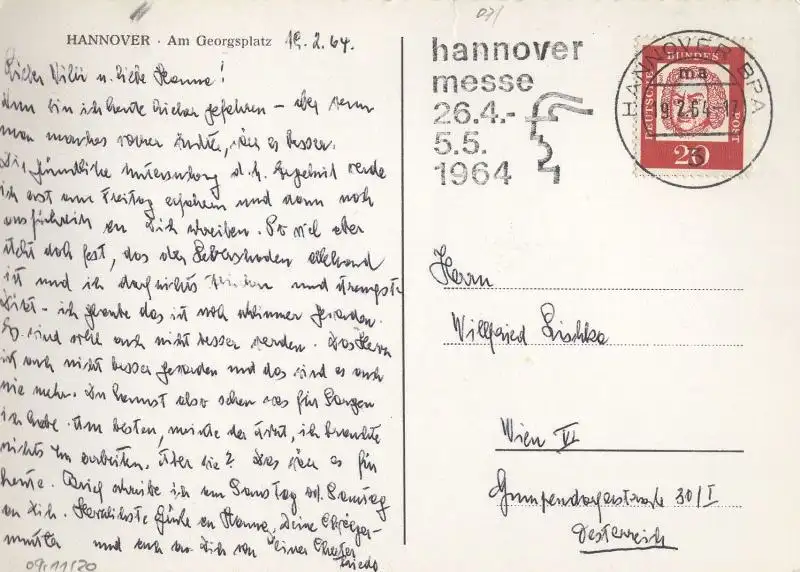 HANNOVER · Am Georgsplatz 19.2.64.
Lieber Willi u. liebe Hanna!
Nun bin ich heute hierher gefahren – aber wenn
man manches vorher wüßte, wäre es besser.
Die gründliche Untersuchung d.h. Ergebnis werde
ich erst am Freitag erfahren und dann noch
ausführlich an Dich schreiben. So viel aber
steht doch fest, das der Leberschaden
ist und ich darf nichts trinken und strengste
Diät – ich glaube das ist noch schlimmer geworden.
Es wird wohl auch nicht besser werden. Das Herz
ist auch nicht besser geworden und das wird es auch
nie mehr. Du kannst also sehen was für Sorgen
ich habe. Am besten, meinte der Arzt, ich brauchte
nichts zu arbeiten. Aber wie? Das wäre es für
heute. Brief schreibe ich am Samstag od. Sonntag
an Dich. Herzlichste Grüße an Hanna, Deine Schwieger-
mutter und auch an Dich von Deiner
Friedo
hannover
messe
26.4.-
5.5.
1964
HANNOVER BPA
ma
19.2.64-17
DEUTSCHE BUNDESPOST
20
Herrn
Willfried Lischka
Wien VI
Gumpendorferstraße 30/I
Österreich
09/11/20